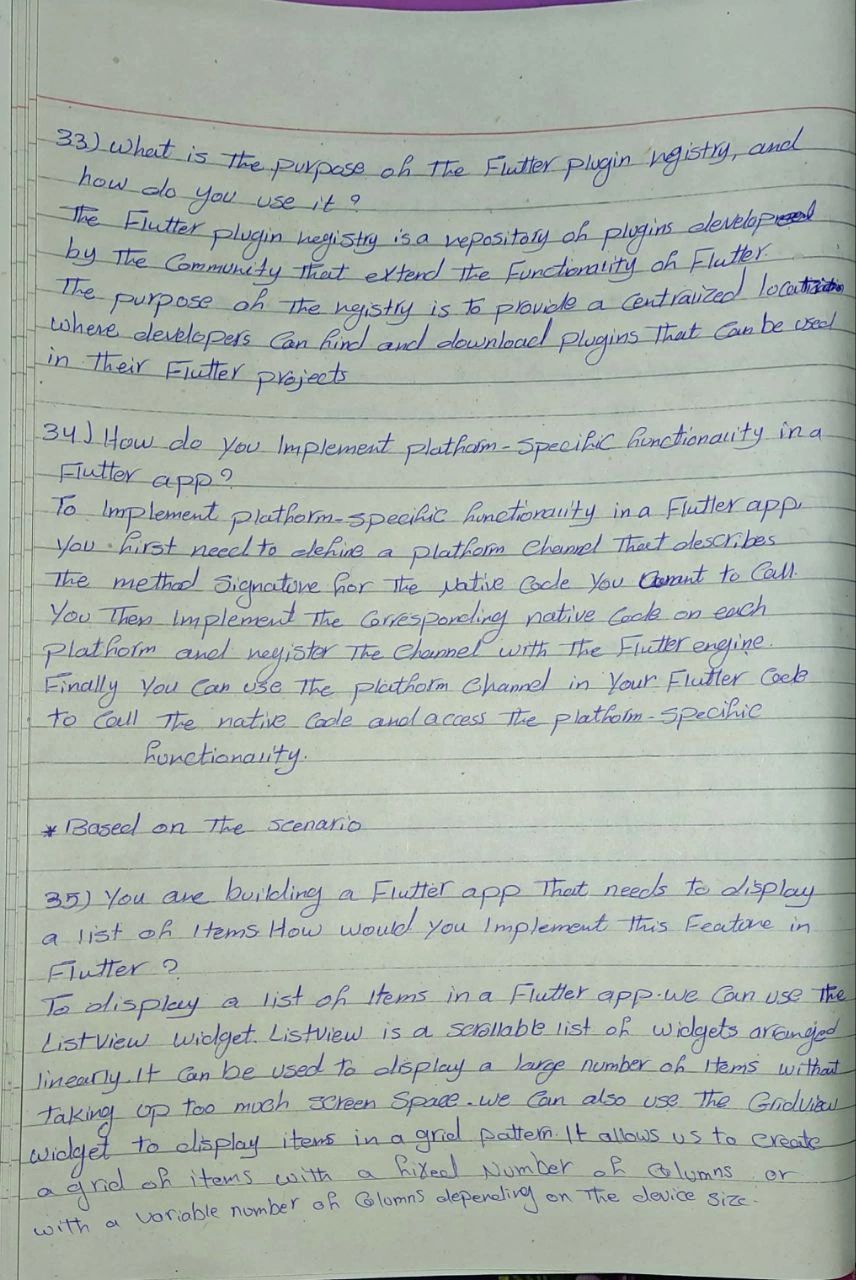 33) What is the purpose of the Flutter plugin registry, and
how do you use it ?
The Flutter plugin registry is a repository of plugins developed
by the Community that extend the Functionality of Flutter.
The purpose of the registry is to provide a Centralized location
where developers Can find and download plugins that Can be used
in their Flutter projects
34) How do you Implement platform-specific functionality in a
Flutter app?
To Implement platform-specific functionality in a Flutter app,
you first need to define a platform Channel that describes
The method Signature for The Native Code You want to Call.
You Then Implement The Corresponding native Code on each
platform and register The Channel with the Flutter engine.
Finally You Can use The platform Channel in Your Flutter Code
to Call The native Code and access The platform-specific
functionality.
* Based on The scenario
35) You are building a Flutter app That needs to display
a list of Items How would you Implement this Feature in
Flutter ?
To display a list of Items in a Flutter app.we Can use The
ListView widget. Listview is a scrollable list of widgets arranged
linearly. It Can be used to display a large number of Items without
taking up too much screen Space.we Can also use The Gridview
widget to display items in a grid pattern. It allows us to create
a grid of items with a fixed Number of Columns or
with a variable number of Columns depending on The device size.